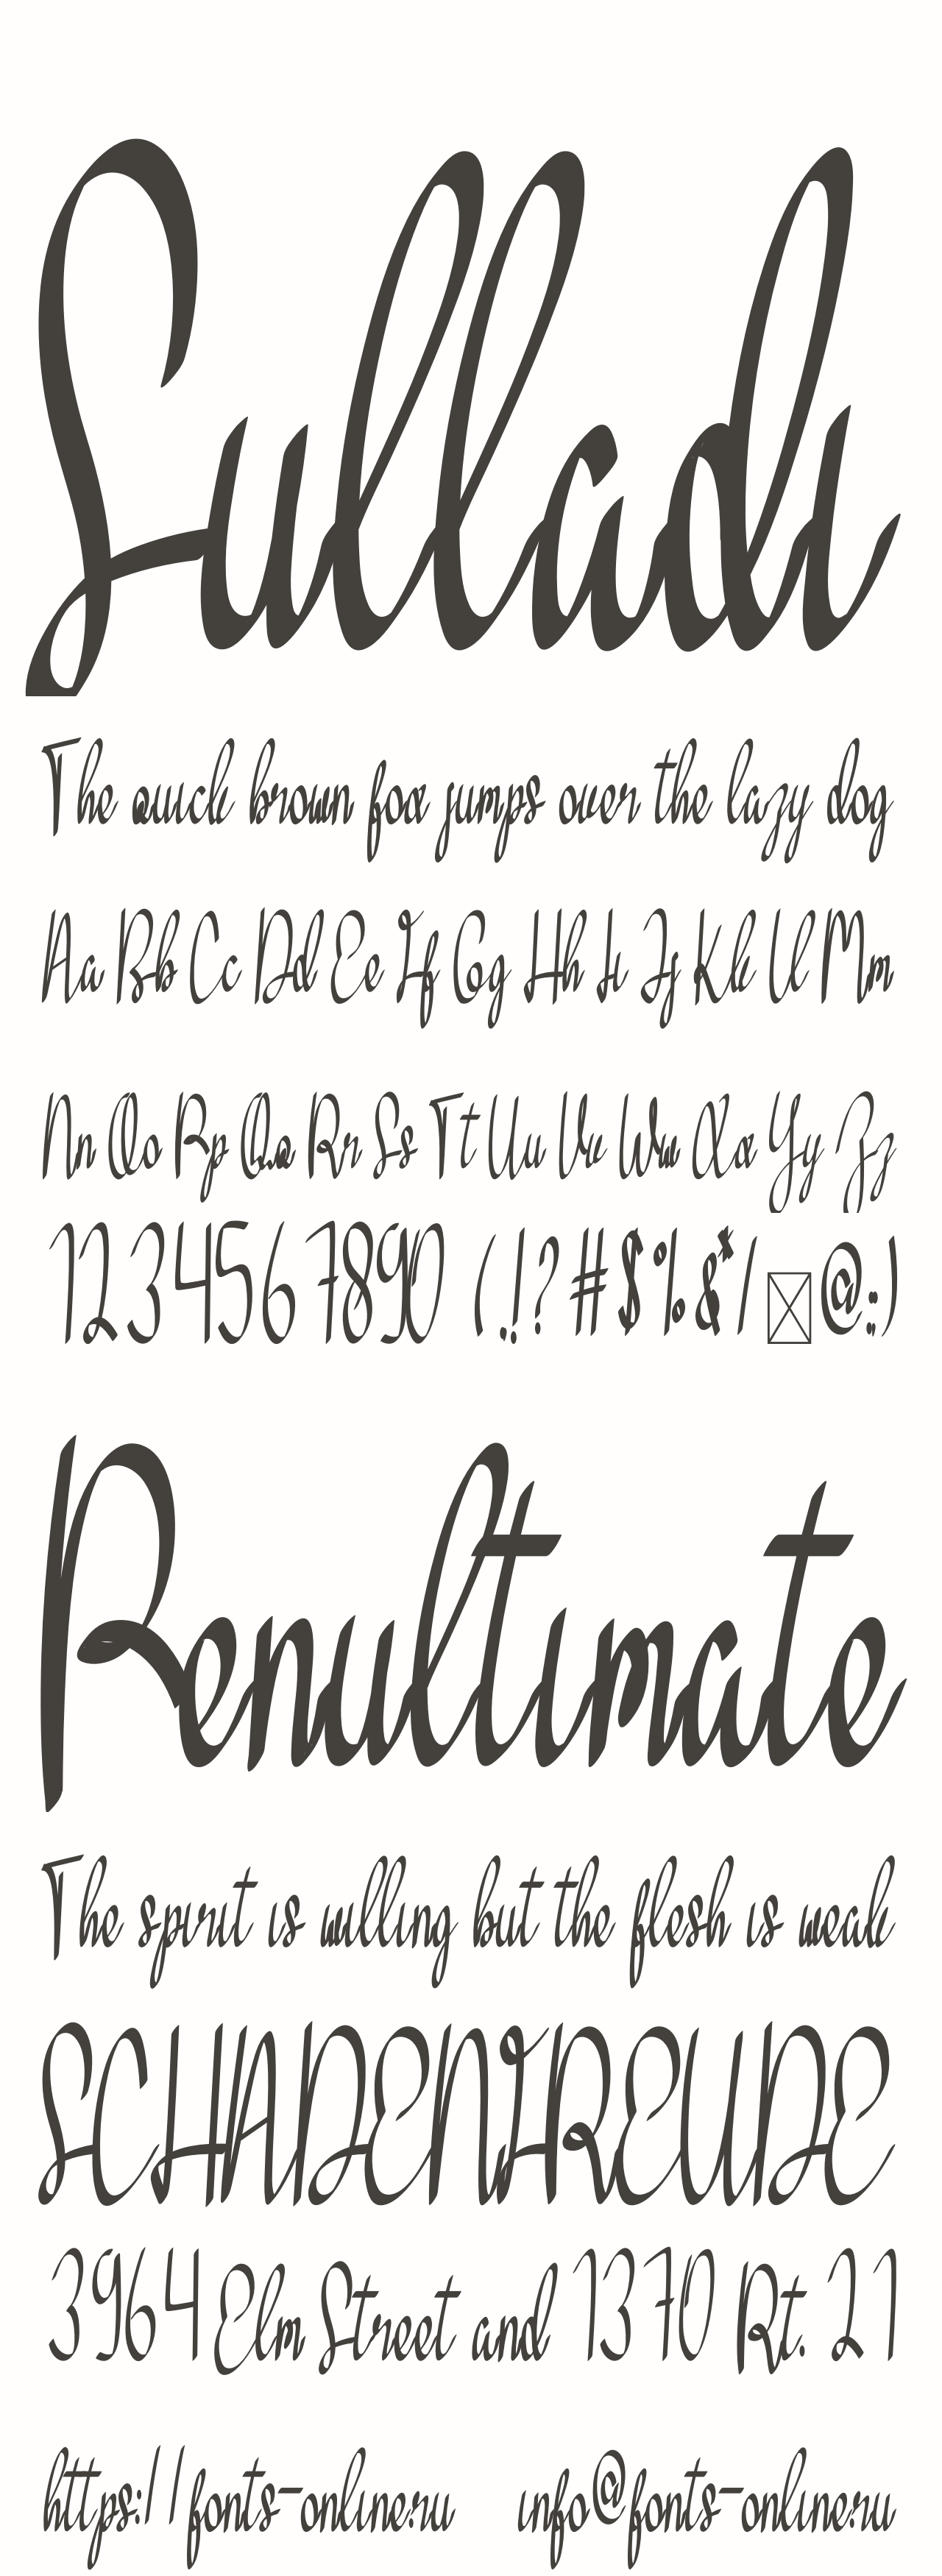 Sulladi
The quick brown fox jumps over the lazy dog
Aa Bb Cc Dd Ee Ff Gg Hh Ii Jj Kk Ll Mm
Nn Oo Pp Qq Rr Ss Tt Uu Vv Ww Xx Yy Zz
1234567890 (.!?#$%&*/ @:;)
Penultimate
The spirit is willing but the flesh is weak
SCHADENFREUDE
3964 Elm Street and 1370 Rt. 21
https://fonts-online.ru info@fonts-online.ru